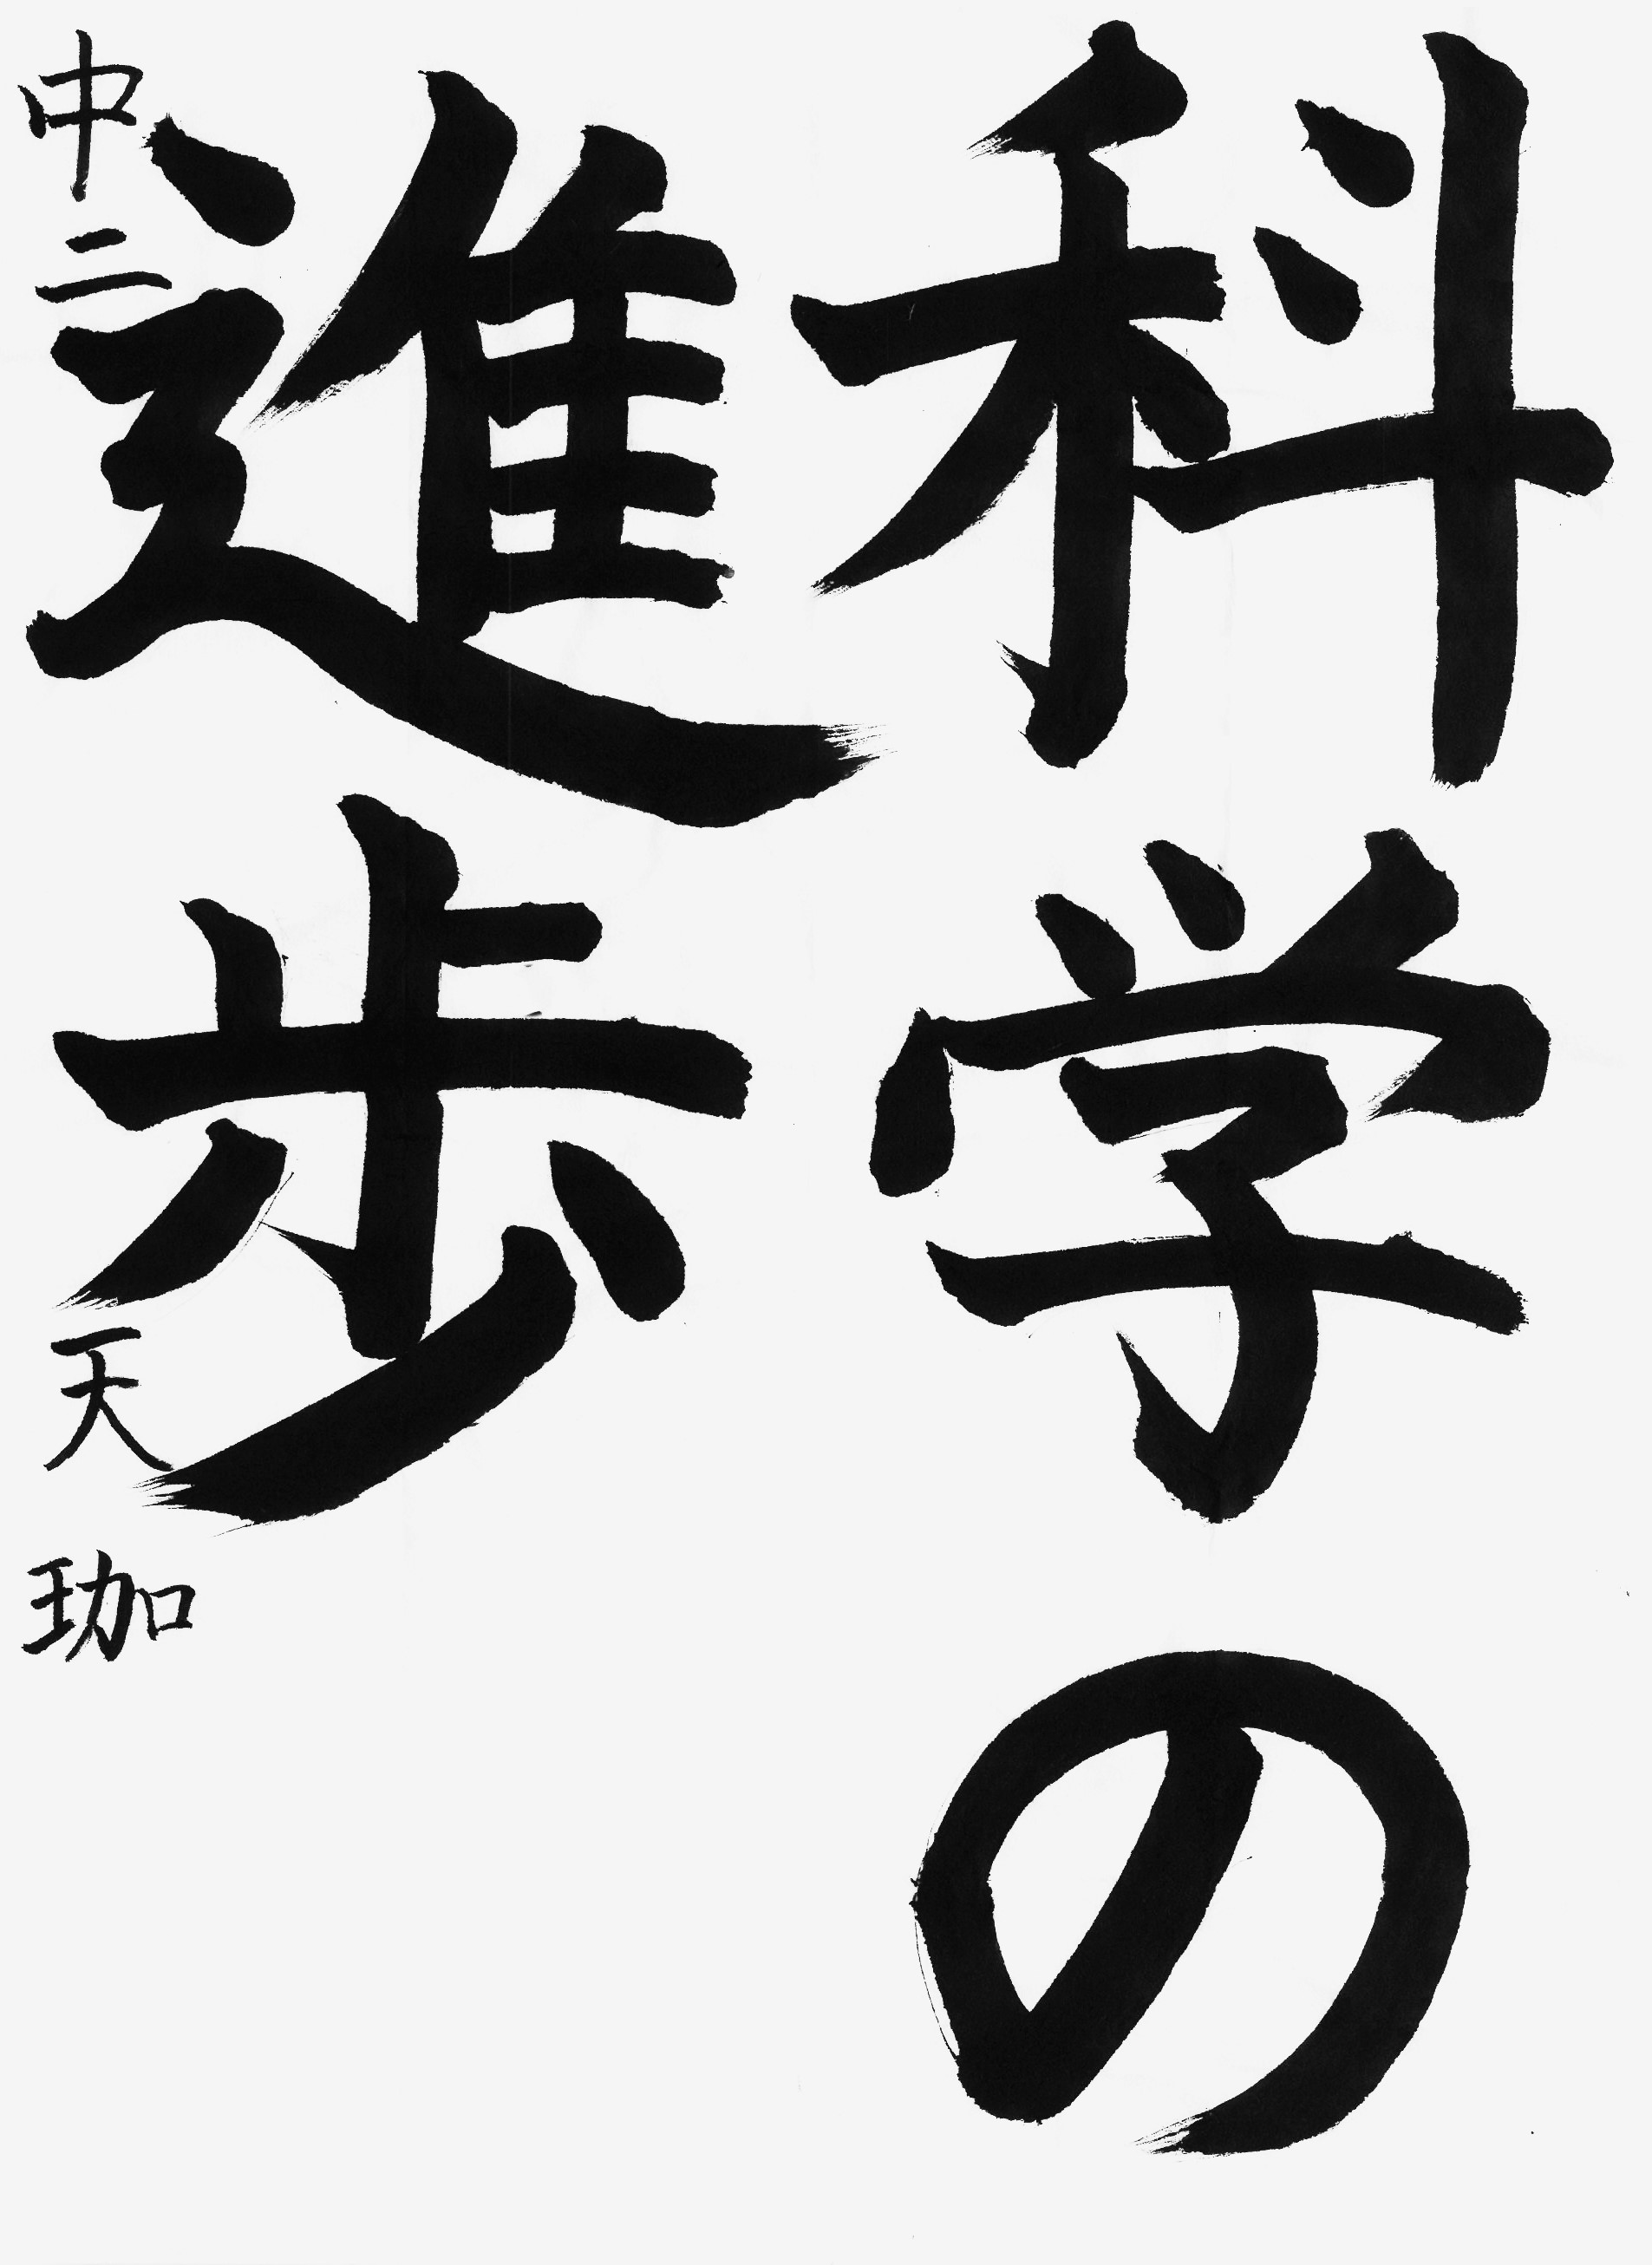 科学の
進歩
中二 天珈